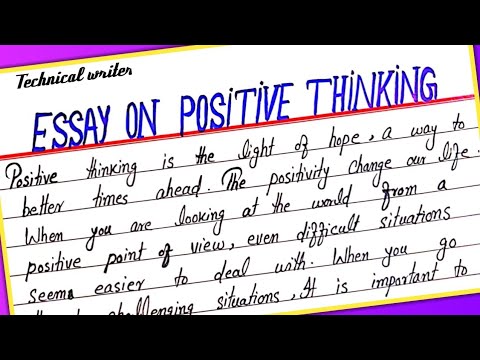 Technical writer
ESSAY ON POSITIVE THINKING
Positive thinking is the light of hope, a way to
better times ahead. The positivity change our life.
When you are looking at the world from a
positive point of view, even difficult situations
seems easier to deal with. When you go
challenging situations, It is important to